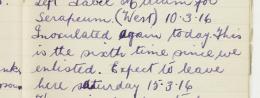 Left Label Medium for
Serapeum. (West) 10-3-16
Inoculated again today. This
is the sixth time since we
enlisted. Expect to leave
here Saturday 15-3-16